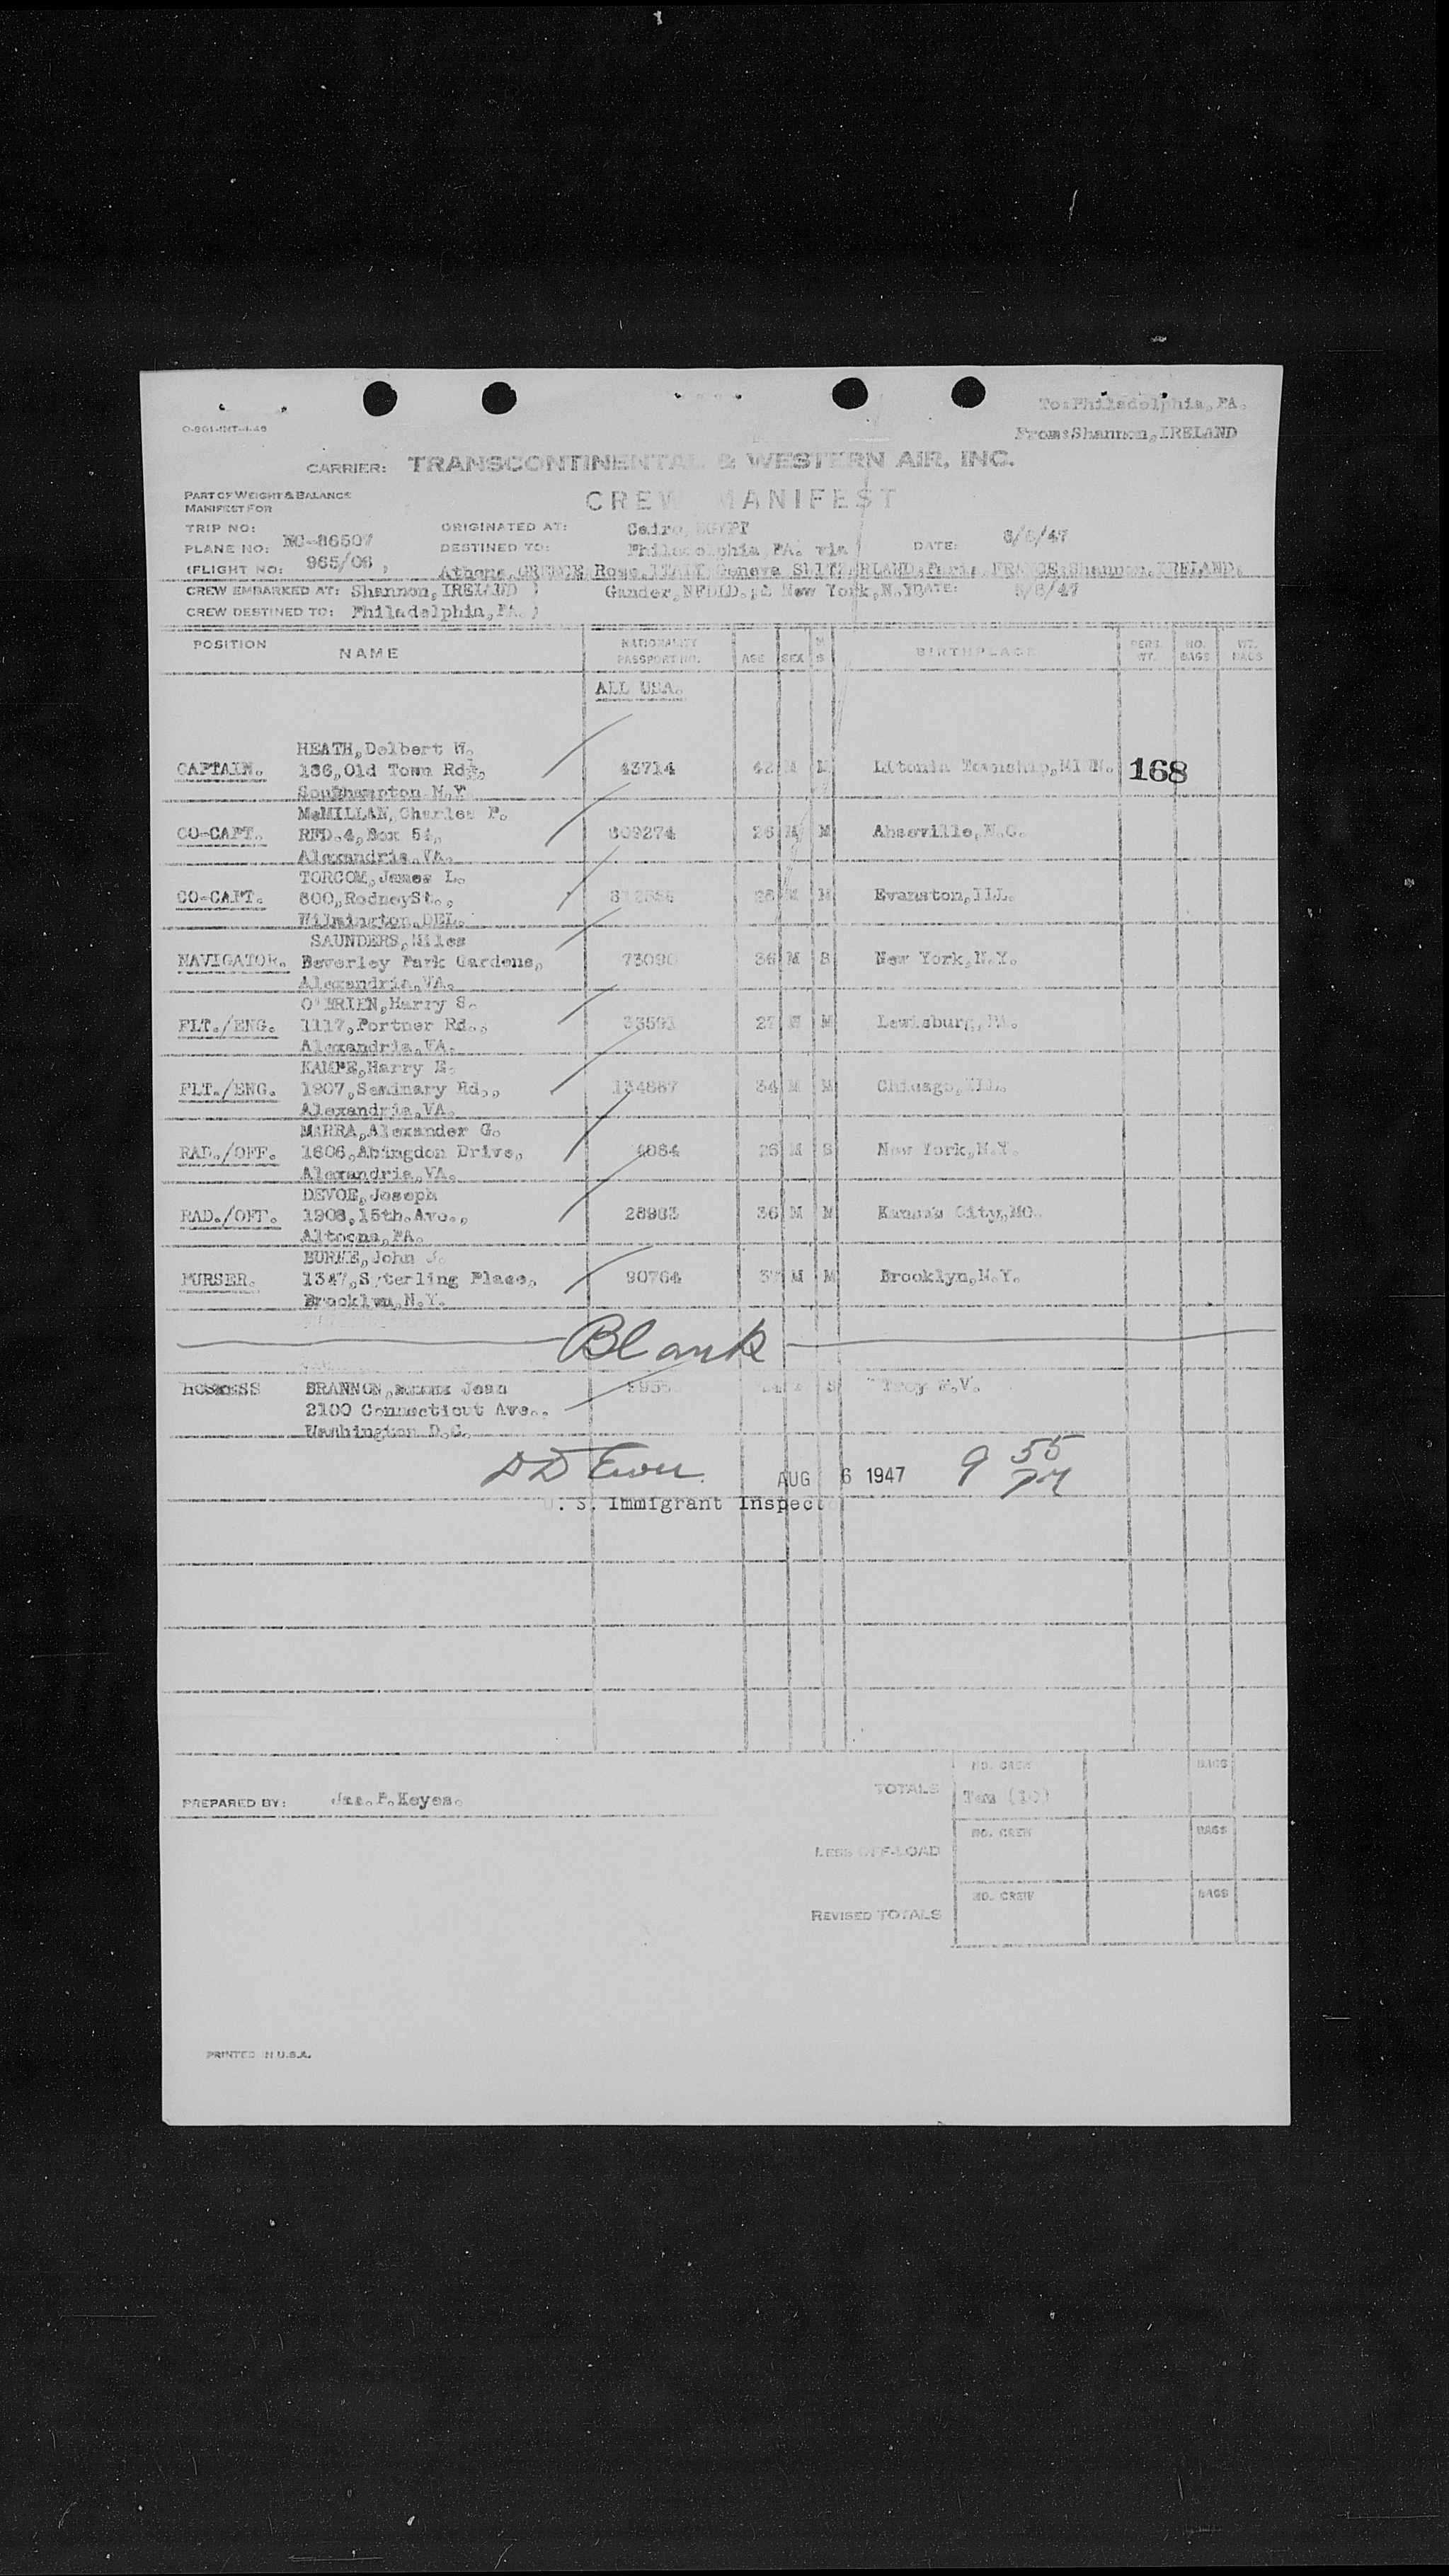 To:Philadelphia,PA.
O-801-INT-4-46
From:Shannon,IRELAND
CARRIER: TRANSCONTINENTAL & WESTERN AIR, INC.
PART OF WEIGHT & BALANCE
MANIFEST FOR
CREW MANIFEST
TRIP NO: ORIGINATED AT: Cairo,EGYPT
PLANE NO: NC-86507 DESTINED TO: Philadelphia,PA. via DATE: 6/8/47
(FLIGHT NO: 965/06 ) Athens,GREECE Rome,ITALY Geneva SWITZERLAND,Paris,FRANCE;Shannon,IRELAND.
CREW EMBARKED AT: Shannon,IRELAND ) Gander,NFDLD. New York,N.Y. DATE:
CREW DESTINED TO: Philadelphia,PA.)
POSITION NAME NATIONALITY PASSPORT NO. AGE SEX M S BIRTHPLACE PERS. WT. NO. BAGS WT. BAGS
ALL USA.
HEATH,Delbert W.
CAPTAIN. 136,Old Town Rd., 43714 42 M M Township,MINN. 168
Southampton N.Y
McMILLAN,Charles P.
CO-CAPT. RFD.4,Box 54, 809274 26 M M N.C.
Alexandria,VA.
TORCOM,James L.
CO-CAPT. 800,RodneySt., 28 M M Evanston,ILL.
Wilmington,DEL.
SAUNDERS,Miles
NAVIGATOR. Beverley Park Gardens, 36 M S New York,N.Y.
Alexandria,VA.
O'BRIEN,Harry S.
FLT./ENG. 1117,Portner Rd., 27 M M Lewisburg,PA.
Alexandria,VA.
KAMPE,Harry E.
FLT./ENG. 1907,Seminary Rd., 134887 34 M M Chicago,ILL.
Alexandria,VA.
MARRA,Alexander G.
RAD./OFF. 1606,Abingdon Drive, 25 M S New York,N.Y.
Alexandria,VA.
DEVOE,Joseph
RAD./OFF. 1908,15th.Ave., 28983 36 M M Kansas City,MO.
Altoona,PA.
BURKE,John J.
PURSER. 1347,Sterling Place, 90764 37 M M Brooklyn,N.Y.
Brooklyn,N.Y.
Blank
HOSTESS BRANNON, Jean S Troy W.V.
2100 Connecticut Ave.,
Washington D.C.
AUG 6 1947 9 55 PM
U. S. Immigrant Inspector
PREPARED BY: Jas.P.Keyes.
TOTALS NO. CREW BAGS
Ten (10)
LESS OFF-LOAD NO. CREW BAGS
REVISED TOTALS NO. CREW BAGS
PRINTED IN U.S.A.